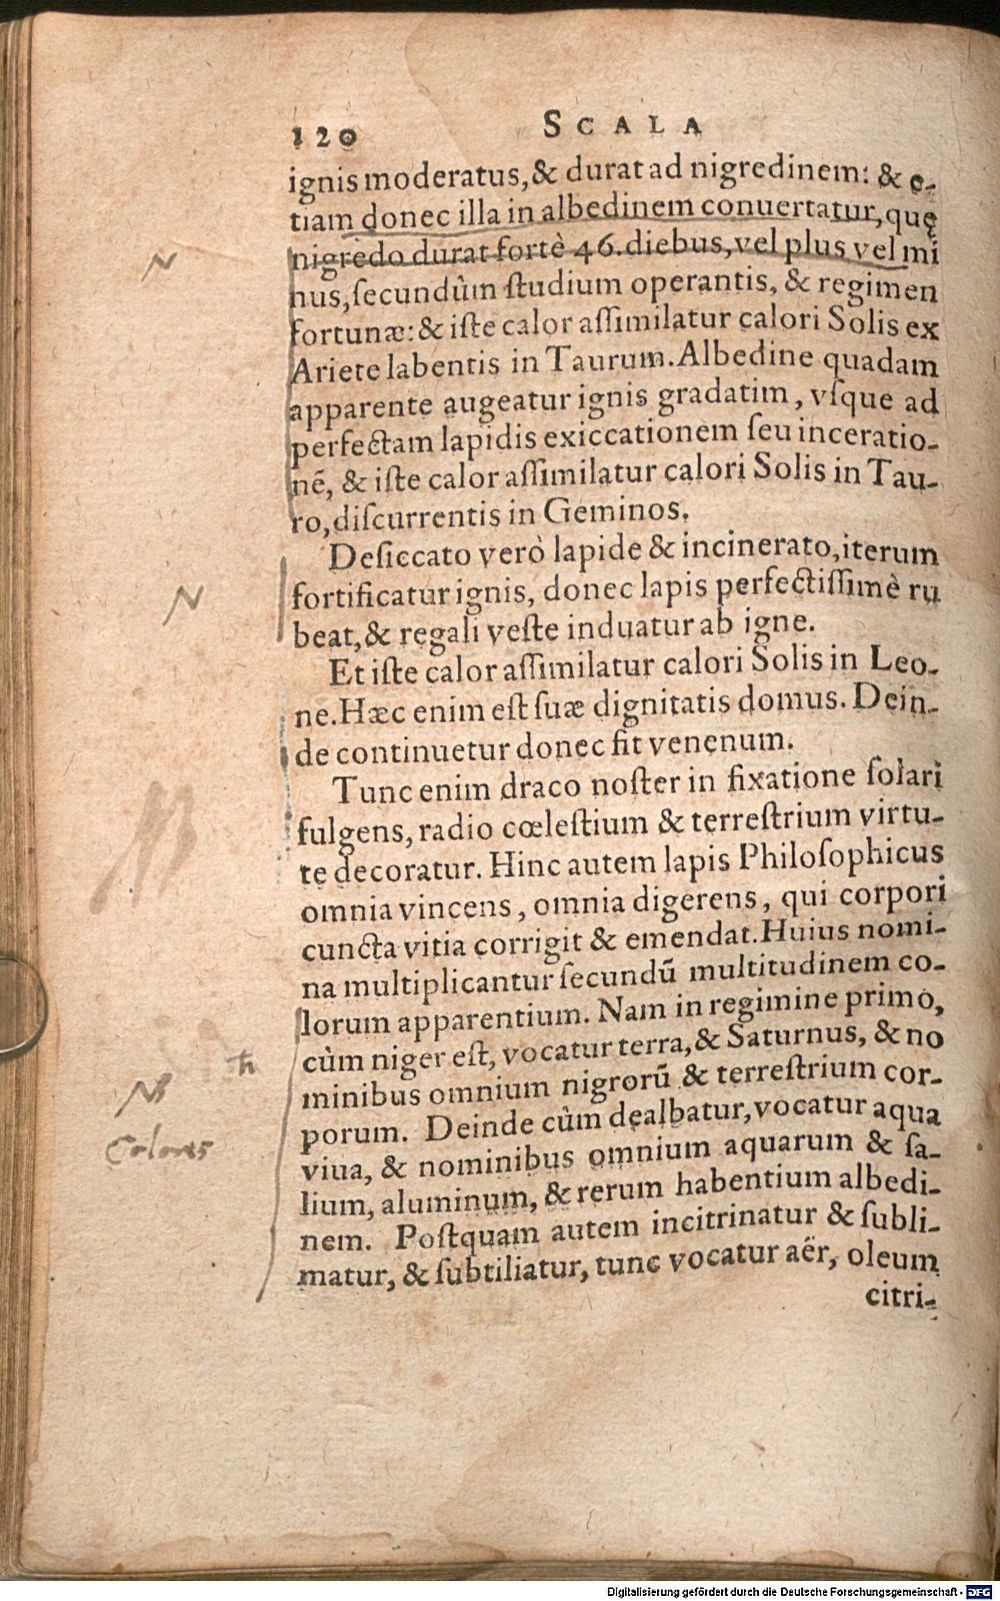 120 SCALA
ignis moderatus, & durat ad nigredinem: & e-
tiam donec illa in albedinem conuertatur, quę
nigredo durat fortè 46. diebus, vel plus vel mi
nus, ſecundûm ſtudium operantis, & regimen
fortunæ: & iſte calor aſſimilatur calori Solis ex
Ariete labentis in Taurum. Albedine quadam
apparente augeatur ignis gradatim, vſque ad
perfectam lapidis exiccationem ſeu inceratio-
nẽ, & iſte calor aſſimilatur calori Solis in Tau-
ro, diſcurrentis in Geminos.
Deſiccato verò lapide & incinerato, iterum
fortificatur ignis, donec lapis perfectiſſimè ru
beat, & regali veſte induatur ab igne.
Et iſte calor aſſimilatur calori Solis in Leo-
ne. Hæc enim eſt ſuæ dignitatis domus. Dein-
de continuetur donec fit venenum.
Tunc enim draco noſter in fixatione ſolari
fulgens, radio cœleſtium & terreſtrium virtu-
te decoratur. Hinc autem lapis Philoſophicus
omnia vincens, omnia digerens, qui corpori
cuncta vitia corrigit & emendat. Huius nomi-
na multiplicantur ſecundũ multitudinem co-
lorum apparentium. Nam in regimine primo,
cùm niger eſt, vocatur terra, & Saturnus, & no
minibus omnium nigrorũ & terreſtrium cor-
porum. Deinde cùm dealbatur, vocatur aqua
viua, & nominibus omnium aquarum & ſa-
lium, aluminum, & rerum habentium albedi-
nem. Poſtquam autem incitrinatur & ſubli-
matur, & ſubtiliatur, tunc vocatur aër, oleum
citri-
N
N
♄
NB
Colores
Digitalisierung gefördert durch die Deutsche Forschungsgemeinschaft - DFG